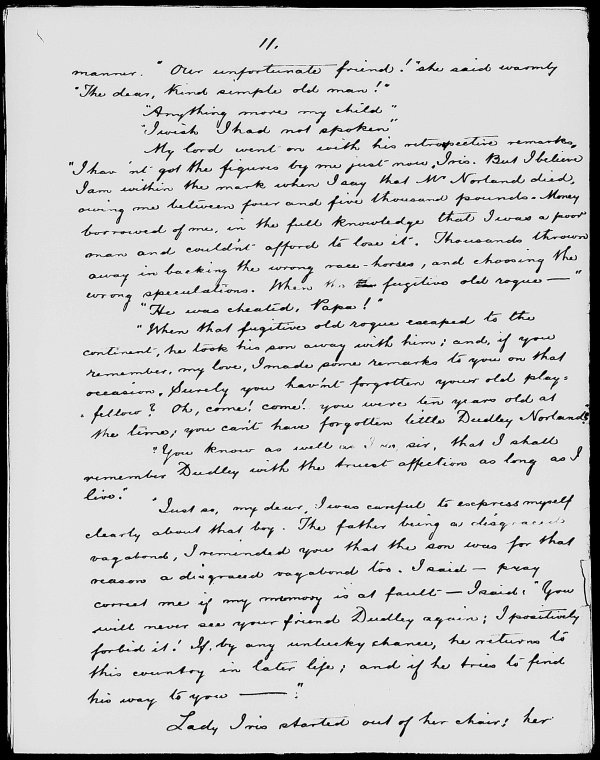 11.
manner. "Our unfortunate friend!" she said warmly
"The dear, kind simple old man!"
"Anything more my child"
"I wish I had not spoken"
My lord went on with his retrospective remarks.
"I hav'nt got the figures by me just now, Iris. But I believe
I am within the mark when I say that Mr Norland died,
owing me between four and five thousand pounds. Money
borrowed of me, in the full knowledge that I was a poor
man and couldn't afford to lose it. Thousands thrown
away in backing the wrong race-horses, and choosing the
wrong speculations. When fugitive old rogue — "
"He was cheated, Papa!"
"When that fugitive old rogue escaped to the
continent, he took his son away with him; and, if you
remember, my love, I made some remarks to you on that
occasion. Surely you hav'nt forgotten your old play=
fellow? Oh, come! come! you were ten years old at
the time; you can't have forgotten little Dudley Norland?"
"You know as well as I do, sir, that I shall
remember Dudley with the truest affection as long as I
live."
"Just so, my dear, I was careful to express myself
clearly about that boy. The father being a disgraced
vagabond, I reminded you that the son was for that
reason a disgraced vagabond too. I said — pray
correct me if my memory is at fault — I said: "You
will never see your friend Dudley again; I positively
forbid it! If, by any unlucky chance, he returns to
this country in later life; and if he tries to find
his way to you —— "
Lady Iris started out of her chair: her